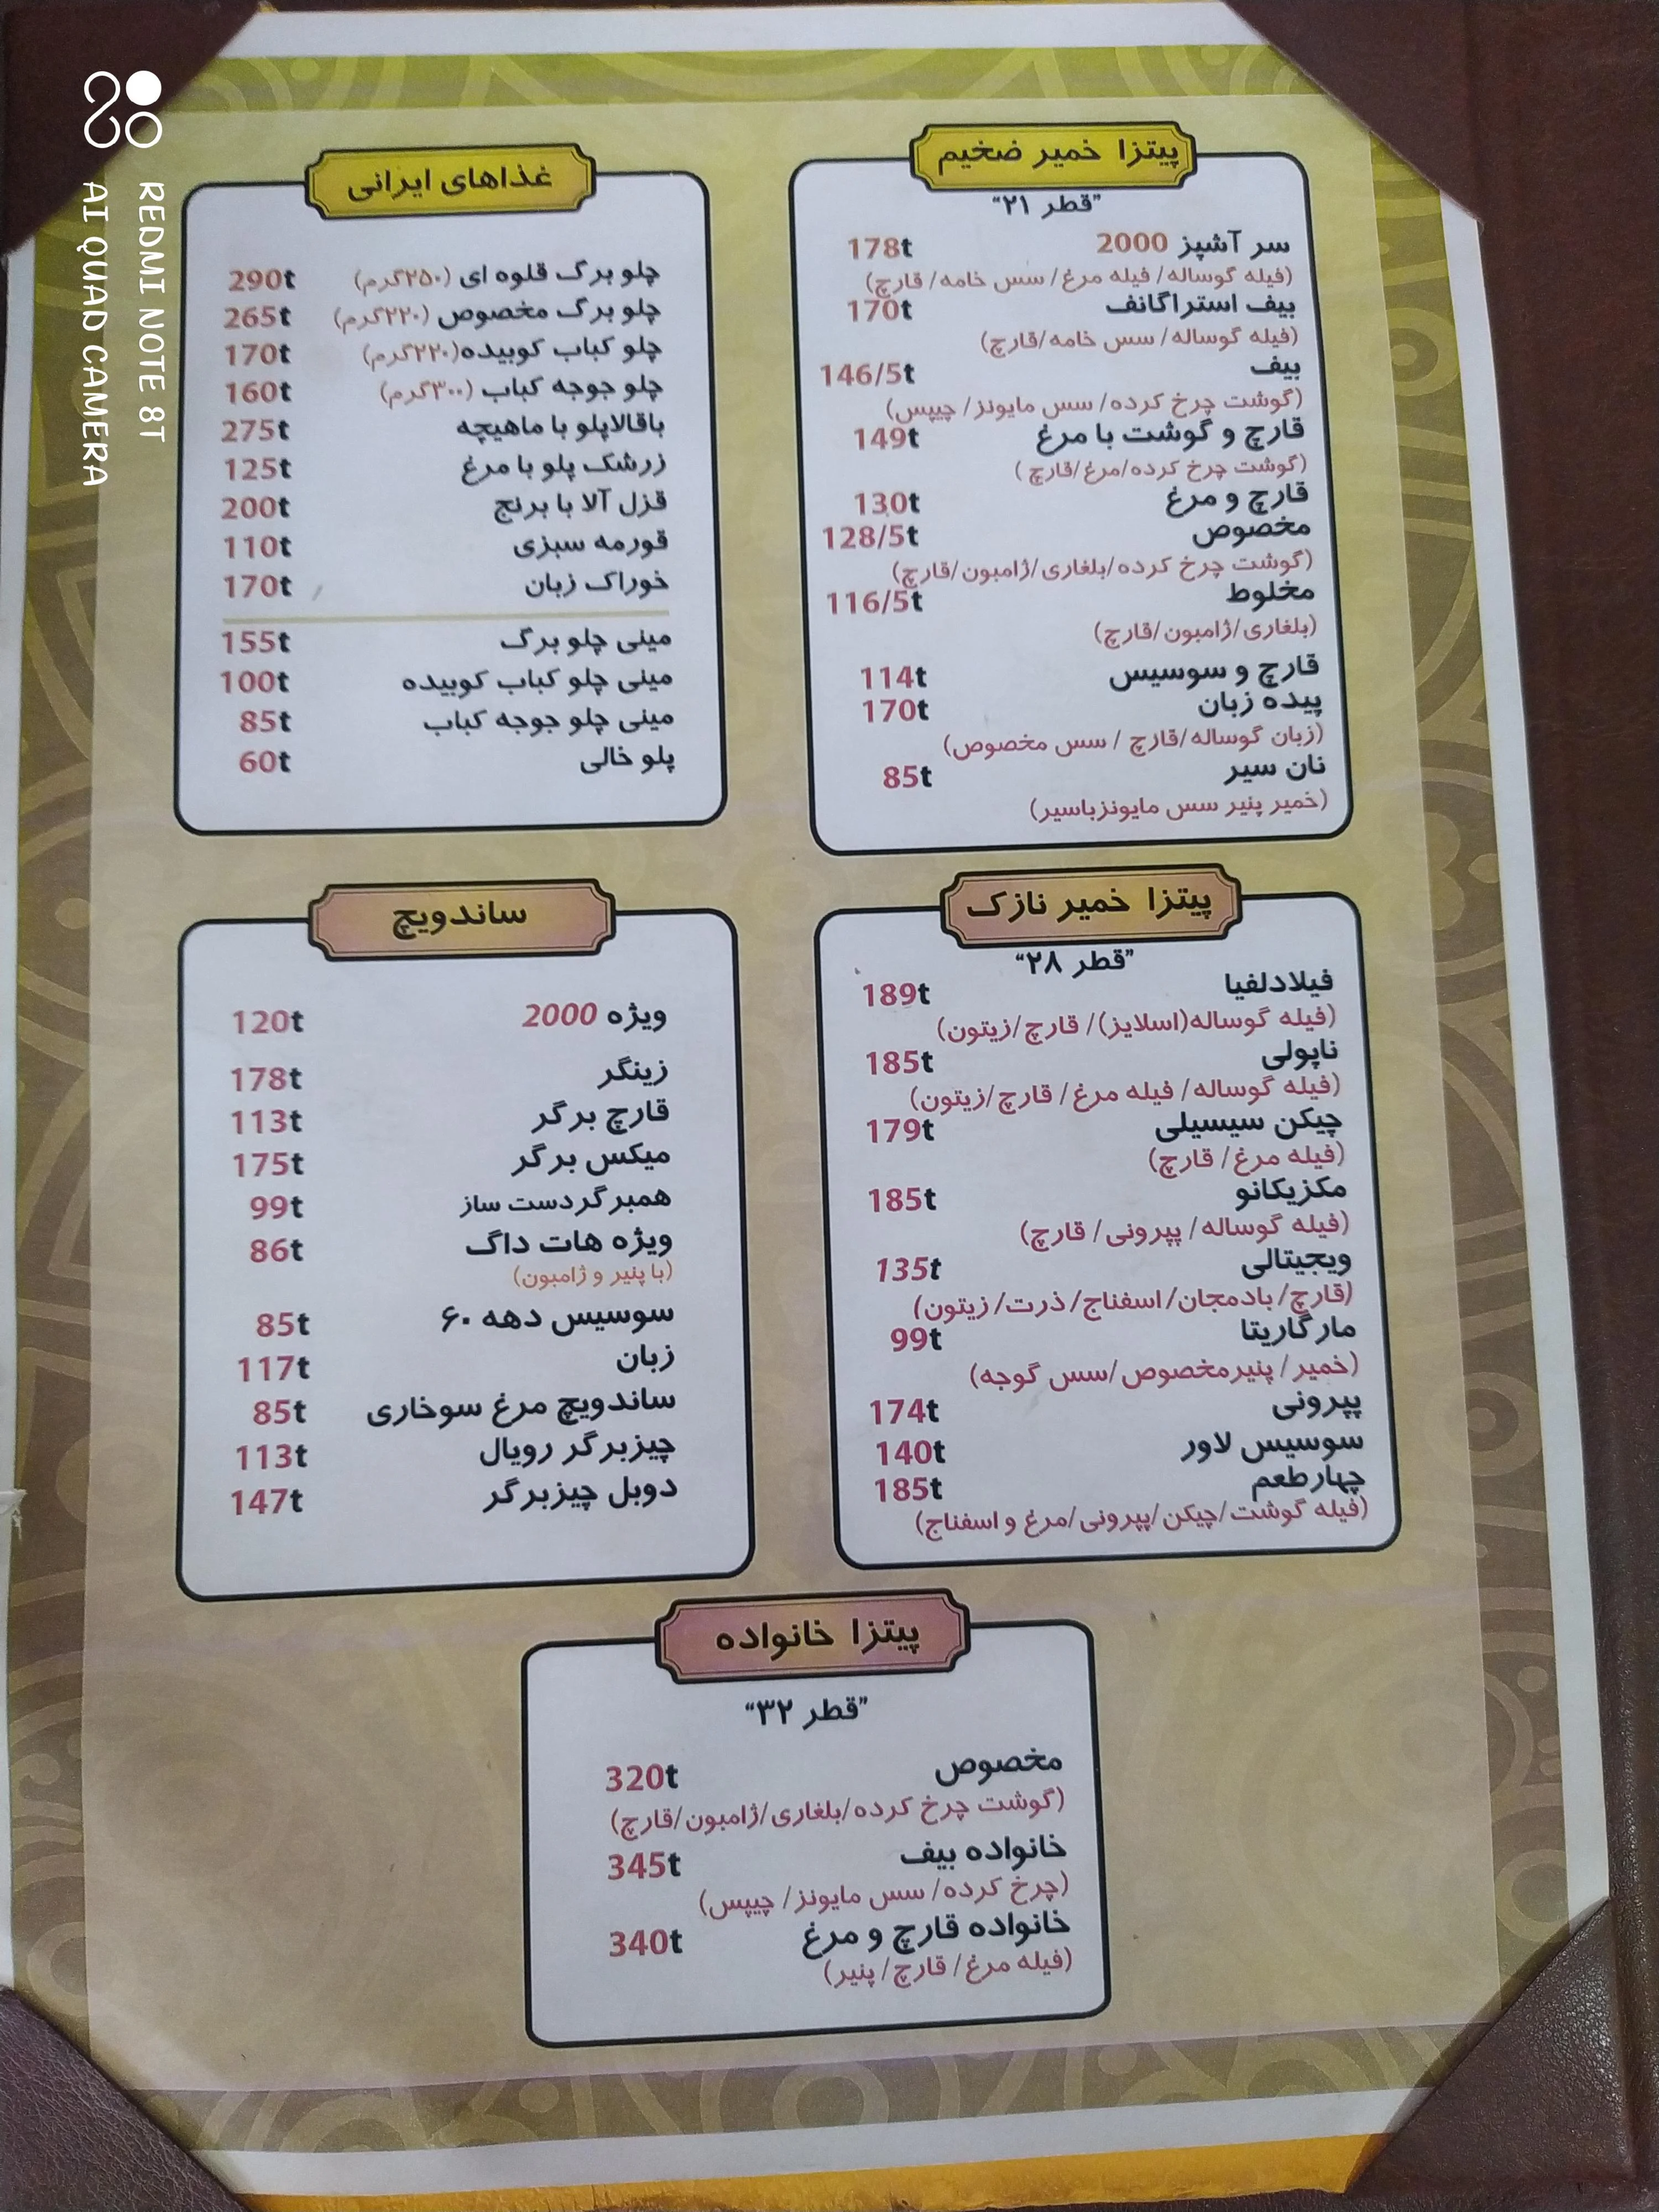 پیتزا خمیر ضخیم
"قطر ۲۱"
سر آشپز 2000 178t
(فیله گوساله/ فیله مرغ/ سس خامه/ قارچ)
بیف استراگانف 170t
(فیله گوساله/ سس خامه/قارچ)
بیف 146/5t
(گوشت چرخ کرده/ سس مایونز/ چیپس)
قارچ و گوشت با مرغ 149t
(گوشت چرخ کرده/مرغ/قارچ )
قارچ و مرغ 130t
مخصوص 128/5t
(گوشت چرخ کرده/بلغاری/ژامبون/قارچ)
مخلوط 116/5t
(بلغاری/ژامبون/قارچ)
قارچ و سوسیس 114t
پیده زبان 170t
(زبان گوساله/قارچ / سس مخصوص)
نان سیر 85t
(خمیر پنیر سس مایونزباسیر)
غذاهای ایرانی
چلو برگ قلوه ای (۲۵۰گرم) 290t
چلو برگ مخصوص (۲۲۰گرم) 265t
چلو کباب کوبیده(۲۲۰گرم) 170t
چلو جوجه کباب (۳۰۰گرم) 160t
باقالاپلو با ماهیچه 275t
زرشک پلو با مرغ 125t
قزل آلا با برنج 200t
قورمه سبزی 110t
خوراک زبان 170t
مینی چلو برگ 155t
مینی چلو کباب کوبیده 100t
مینی چلو جوجه کباب 85t
پلو خالی 60t
پیتزا خمیر نازک
"قطر ۲۸"
فیلادلفیا 189t
(فیله گوساله(اسلایز)/ قارچ/زیتون)
ناپولی 185t
(فیله گوساله/ فیله مرغ/ قارچ/زیتون)
چیکن سیسیلی 179t
(فیله مرغ/ قارچ)
مکزیکانو 185t
(فیله گوساله/ پپرونی/ قارچ)
ویجیتالی 135t
(قارچ/ بادمجان/اسفناج/ ذرت/ زیتون)
مارگاریتا 99t
(خمیر/ پنیرمخصوص/سس گوجه)
پپرونی 174t
سوسیس لاور 140t
چهارطعم 185t
(فیله گوشت/چیکن/پپرونی/مرغ و اسفناج)
ساندویچ
ویژه 2000 120t
زینگر 178t
قارچ برگر 113t
میکس برگر 175t
همبرگردست ساز 99t
ویژه هات داگ 86t
(با پنیر و ژامبون)
سوسیس دهه ۶۰ 85t
زبان 117t
ساندویچ مرغ سوخاری 85t
چیزبرگر رویال 113t
دوبل چیزبرگر 147t
پیتزا خانواده
"قطر ۳۲"
مخصوص 320t
(گوشت چرخ کرده/بلغاری/ژامبون/قارچ)
خانواده بیف 345t
(چرخ کرده/ سس مایونز/ چیپس)
خانواده قارچ و مرغ 340t
(فیله مرغ/ قارچ/ پنیر)
REDMI NOTE 8T
AI QUAD CAMERA